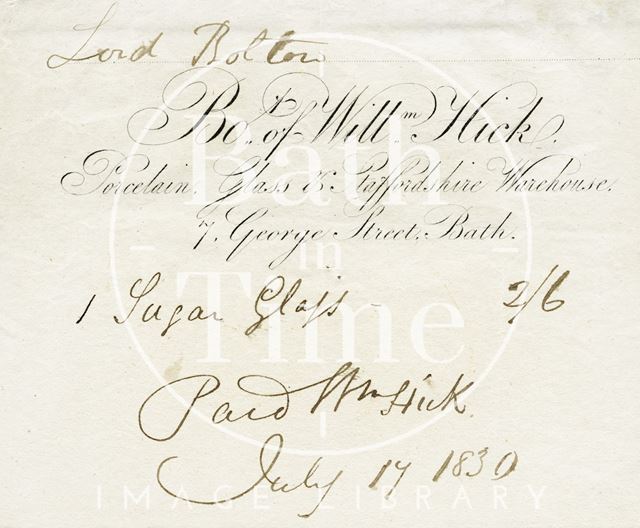 Lord Bolton
Bot. of Willm. Hick.
Porcelain, Glass & Staffordshire Warehouse,
7, George Street, Bath.
1 Sugar Glass - 2/6
Paid Wm Hick
July 17 1830
Bath
in
Time
IMAGE LIBRARY